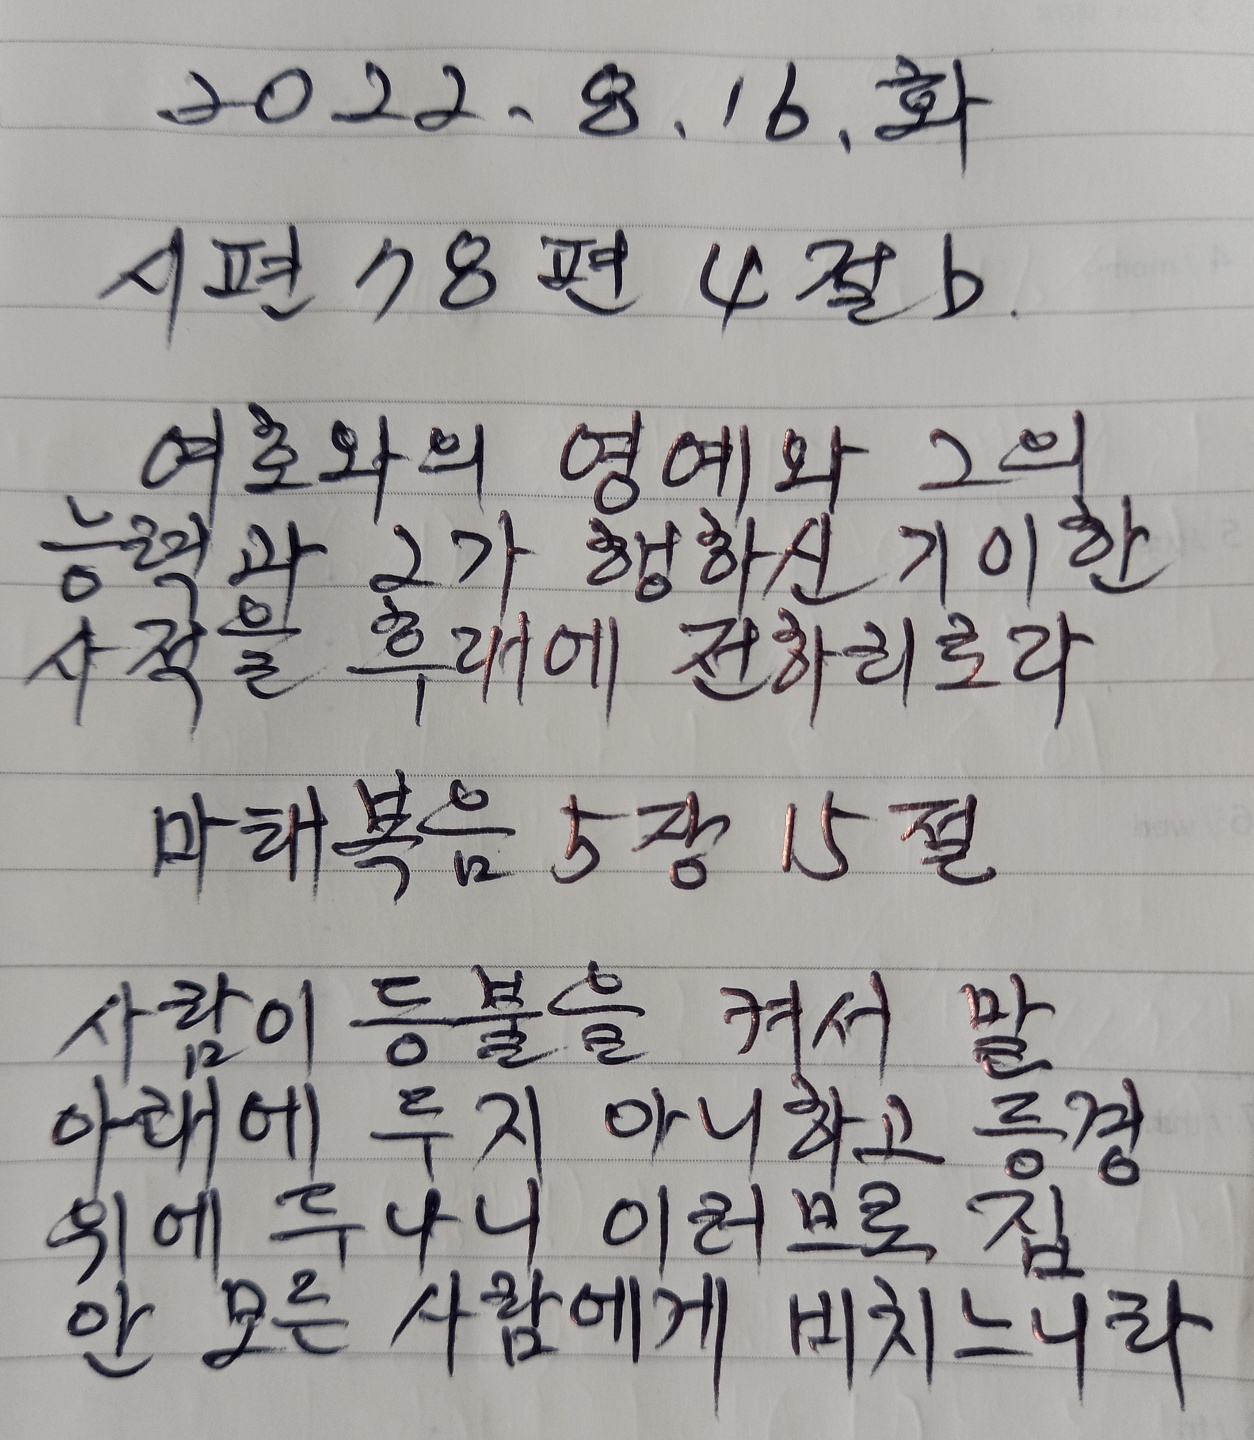 2022. 8. 16. 화
시편 78편 4절b.
여호와의 영예와 그의
능력과 그가 행하신 기이한
사적을 후대에 전하리로다
마태복음 5장 15절
사람이 등불을 켜서 말
아래에 두지 아니하고 등경
위에 두나니 이러므로 집
안 모든 사람에게 비치느니라